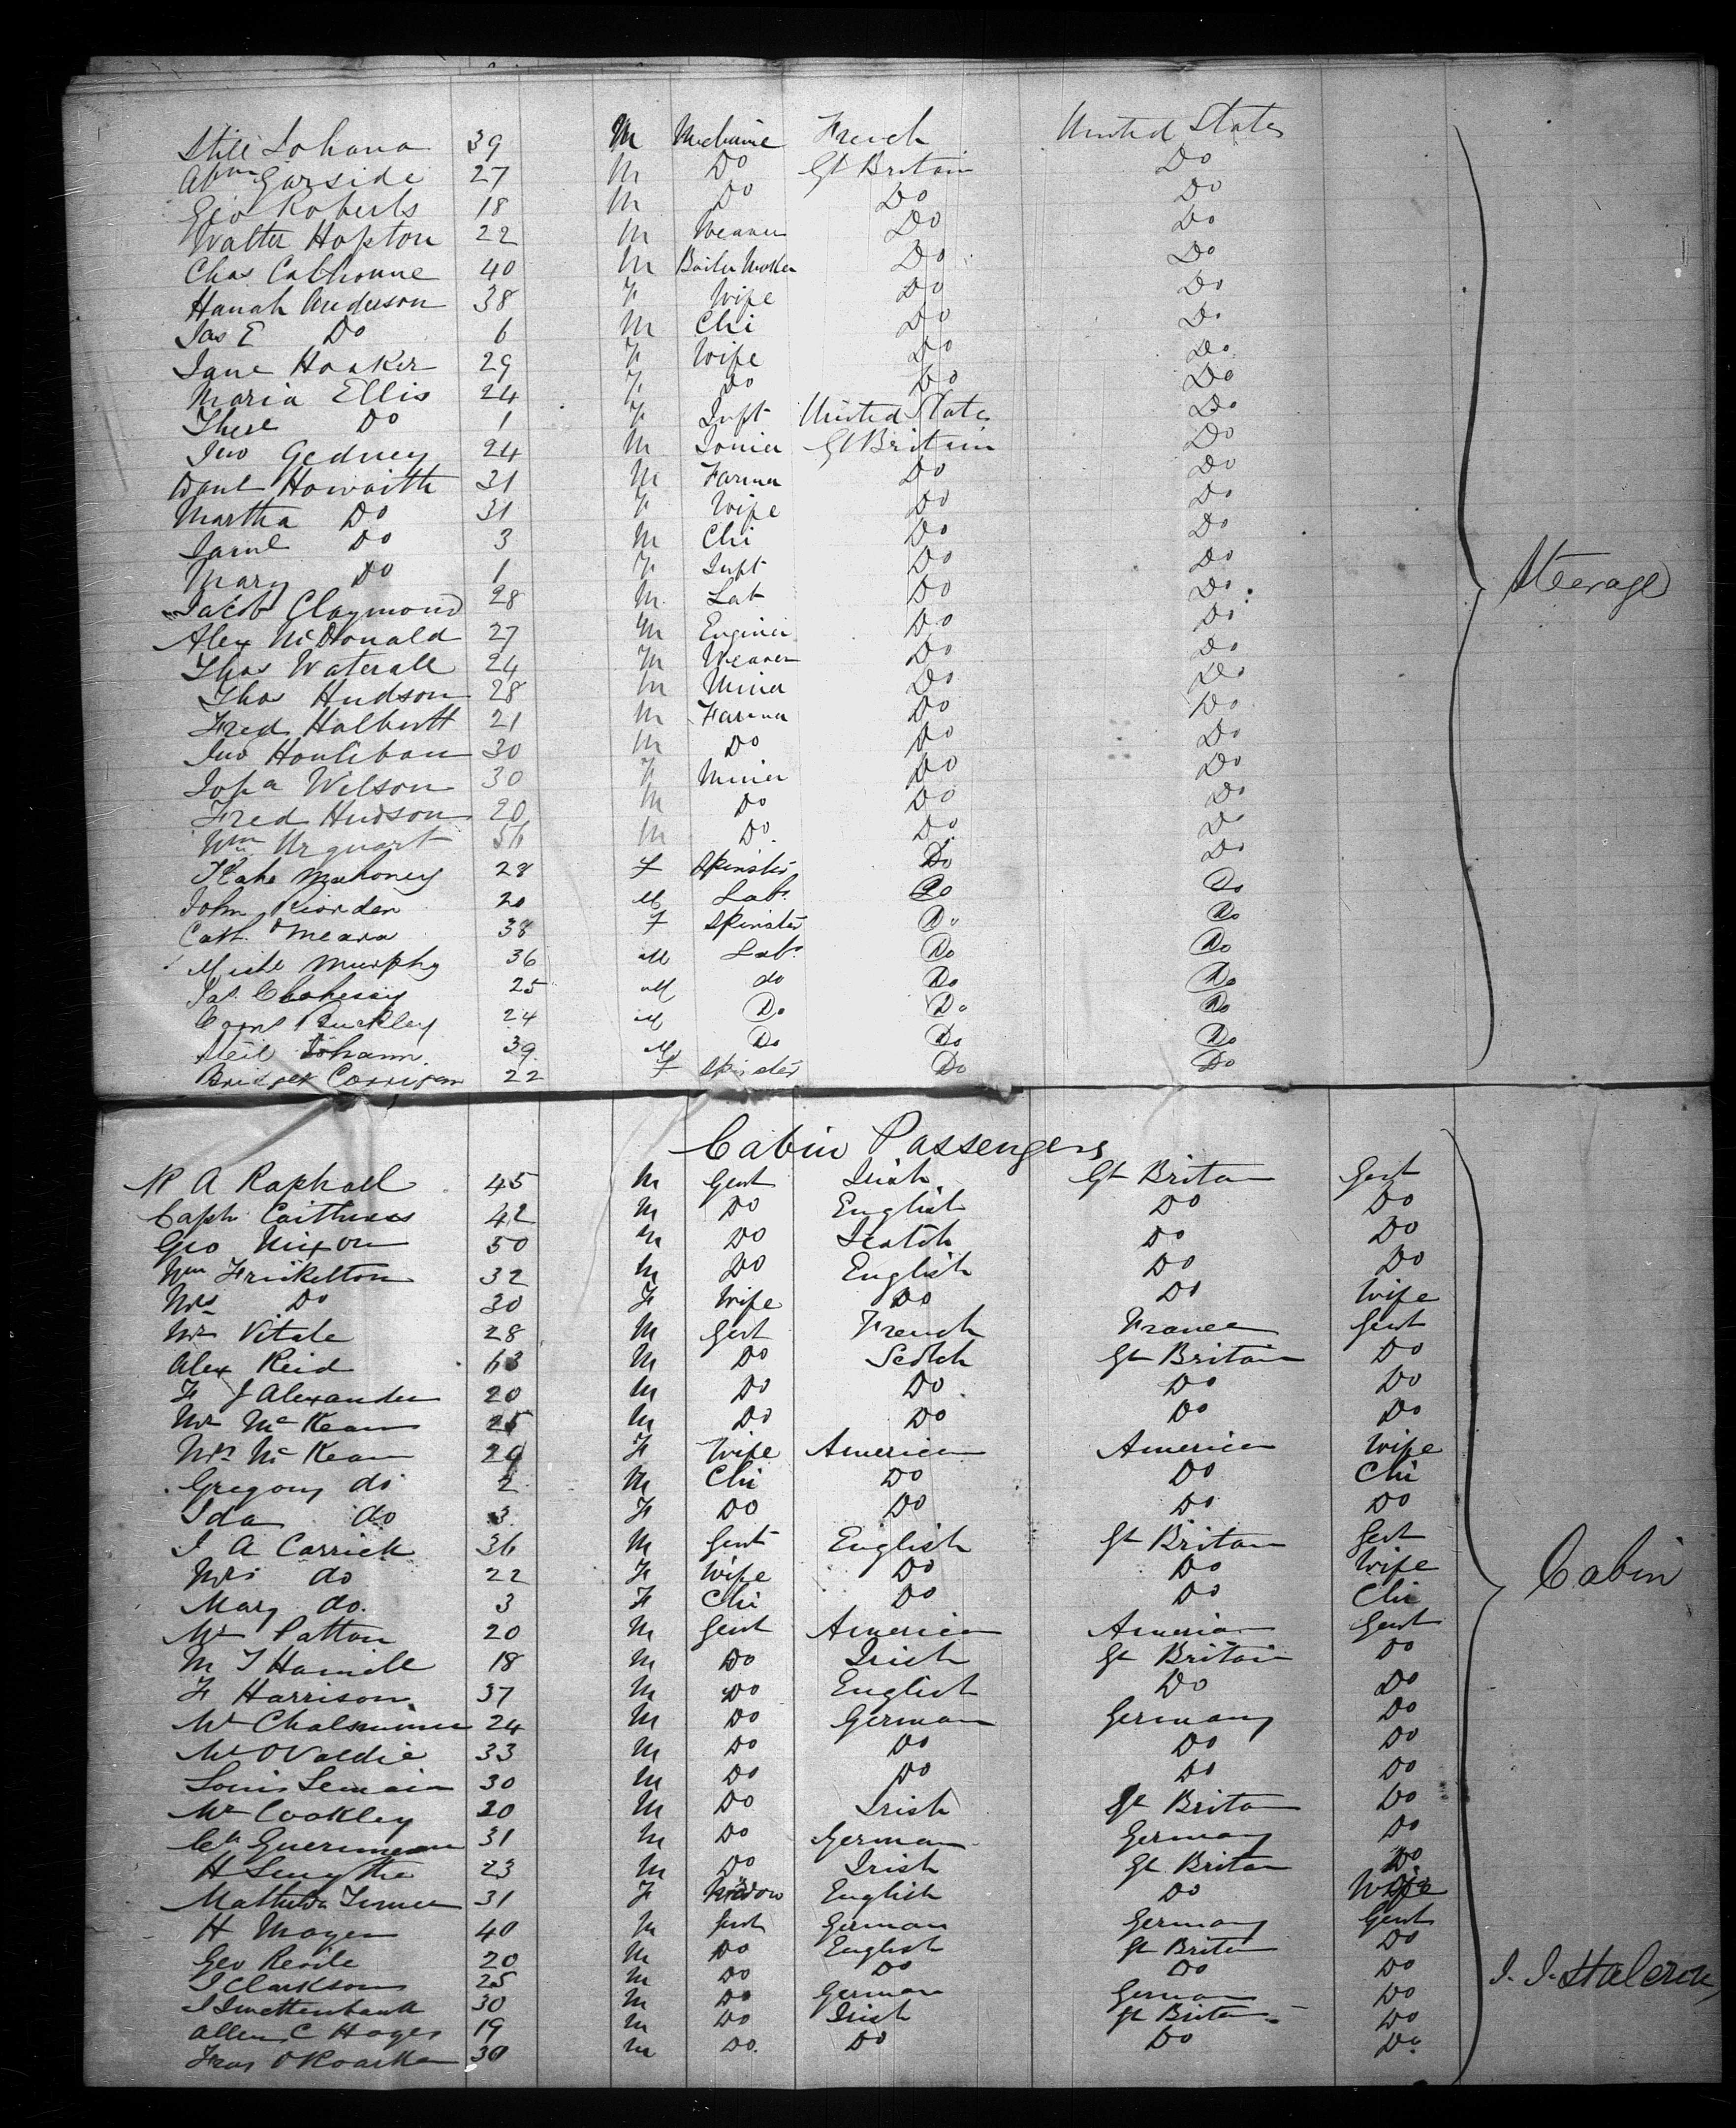 Still Johana 39 M Mechanic French United States
Abm Garside 27 M Do Gt Britain Do
Geo Roberts 18 M Do Do Do
Walter Hopton 22 M Weaver Do Do
Chas Calhoune 40 M Boiler Maker Do Do
Hanah Anderson 38 F Wife Do Do
Jas E Do 6 M Chi Do Do
Jane Hooker 29 F Wife Do Do
Maria Ellis 24 F Do Do Do
These Do 1 F Inft United States Do
Jno Gedney 24 M Joiner Gt Britain Do
Danl Howarth 31 M Farmer Do Do
Martha Do 31 F Wife Do Do
Saml Do 3 M Chi Do Do
Mary Do 1 F Inft Do Do
Steerage
Jacob Claymond 28 M Lab Do Do
Alex McDonald 27 M Engineer Do Do
Thos Waterall 24 M Weaver Do Do
Thos Hudson 28 M Miner Do Do
Fred Halbertt 21 M Farmer Do Do
Jno Houlihan 30 M Do Do Do
Sopa Wilson 30 F Miner Do Do
Fred Hudson 20 M Do Do Do
Wm Urquart 56 M Do Do Do
Kate Mahoney 28 F Spinster Do Do
John Riordan 20 M Labr Do Do
Cath OMeara 38 F Spinster Do Do
Michl Murphy 36 M Labr Do Do
Pat 25 M do Do Do
Cornl Buckley 24 M Do Do Do
Steil Johann 39 M Do Do Do
Bridget Corrigan 22 F Spinster Do Do
Cabin Passengers
R A Raphael 45 M Gent Irish Gt Britain Gent
Capt Caithness 42 M Do English Do Do
Geo Nixon 50 M Do Scotch Do Do
Wm Frikelton 32 M Do English Do Do
Mrs Do 30 F Wife Do Do Wife
Mr Vitale 28 M Gent French France Gent
Alex Reid 63 M Do Scotch Gt Britain Do
F J Alexander 20 M Do Do Do Do
Mr McKean 25 M Do Do Do Do
Mrs McKean 29 F Wife American America Wife
Gregory do 2 M Chi Do Do Chi
Ida do 3 F Do Do Do Do
J A Carrick 36 M Gent English Gt Britain Gent
Mrs do 22 F Wife Do Do Wife
Cabin
Mary do 3 F Chi Do Do Chi
Mr Patton 20 M Gent American America Gent
M J Hamill 18 M Do Irish Gt Britain Do
F Harrison 37 M Do English Do Do
Mr 24 M Do German Germany Do
Mr OValdie 33 M Do Do Do Do
Louis Lemain 30 M Do Do Do Do
Mr Coakley 20 M Do Irish Gt Britain Do
31 M Do German Germany Do
H Smythe 23 M Do Irish Gt Britain Do
Mathilda Turner 31 F Widow English Do
H Mayer 40 M Gent German Germany Gent
Geo Revile 20 M Do English Gt Britain Do
J Clarkson 25 M Do Do Do Do
J. J. Halcrow
30 M Do German German Do
Allen C Hayes 19 M Do Irish Gt Britain Do
Fras ORoarke 30 M Do Do Do Do